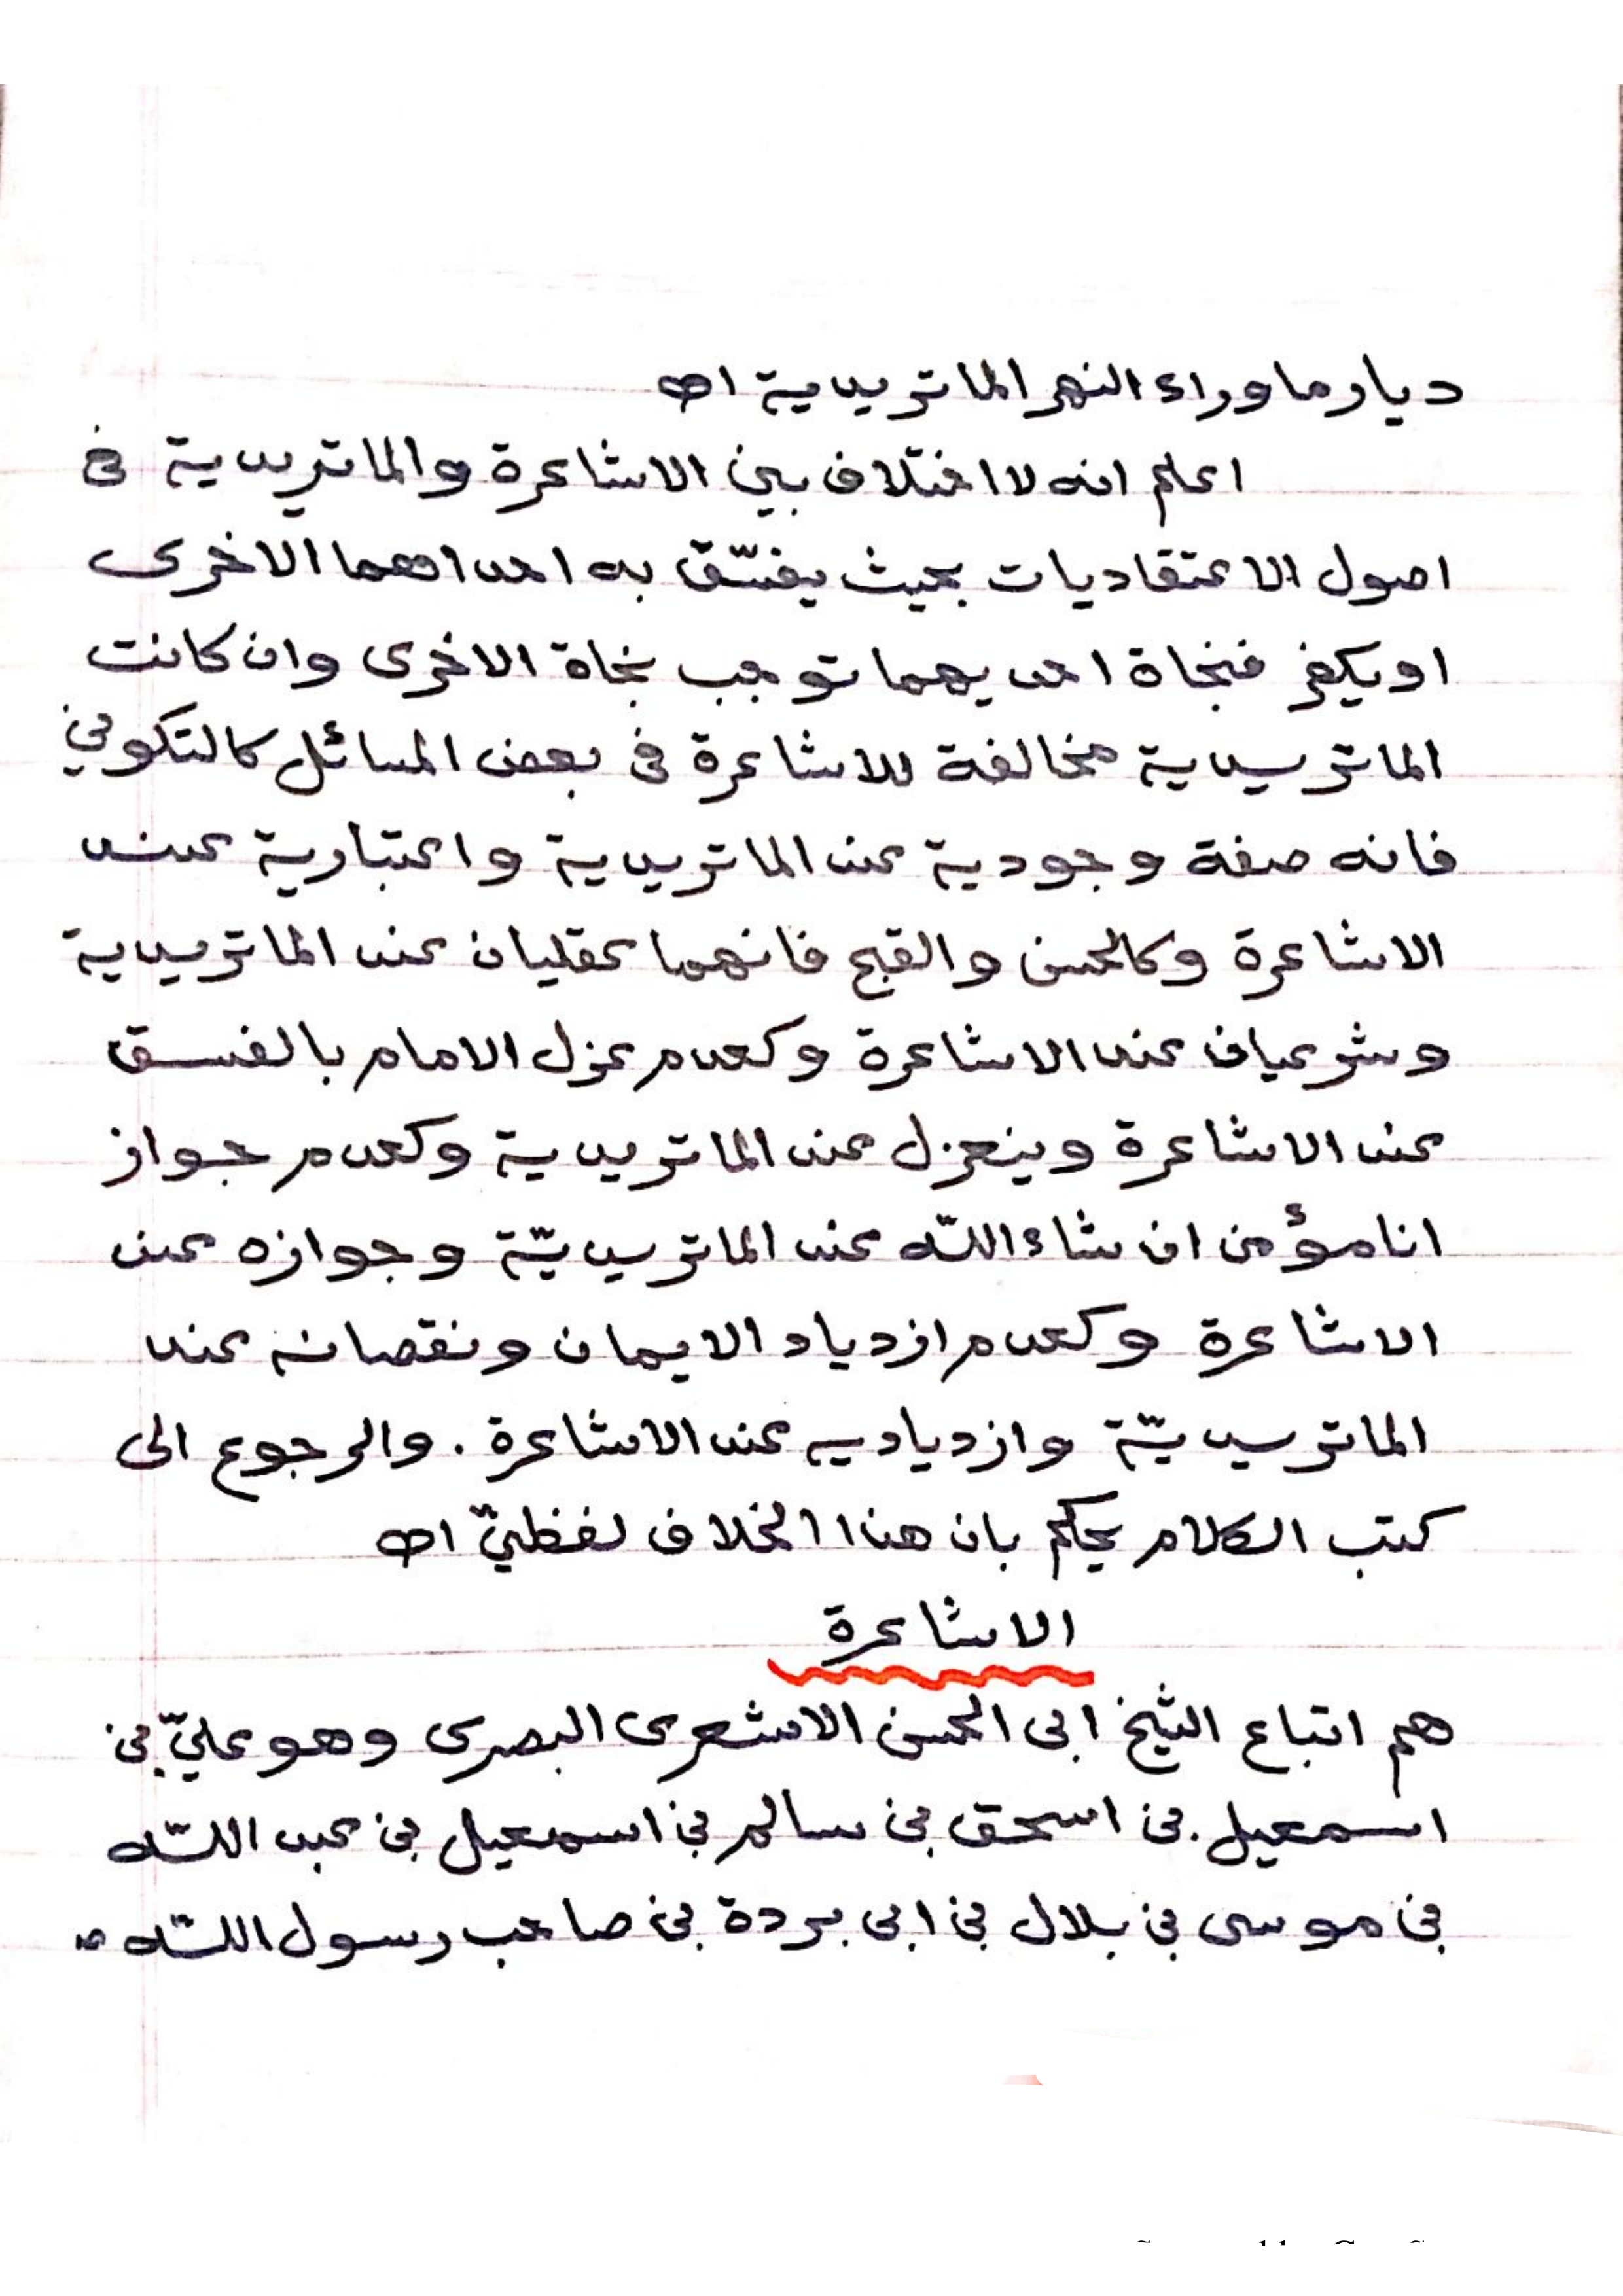 ديار ما وراء النهر الماتريدية اھ
اعلم انه لا اختلاف بين الاشاعرة والماتريدية فى
اصول الاعتقاديات بحيث يفسّق به احداهما الاخرى
او يكفر فنجاة احديهما توجب نجاة الاخرى وان كانت
الماتريدية مخالفة للاشاعرة فى بعض المسائل كالتكوين
فانه صفة وجودية عند الماتريدية واعتبارية عند
الاشاعرة وكالحسن والقبح فانهما عقليان عند الماتريدية
وشرعيان عند الاشاعرة وكعدم عزل الامام بالفسق
عند الاشاعرة وينعزل عند الماتريدية وكعدم جواز
انا مؤمن ان شاء اللّه عند الماتريديّة وجوازه عند
الاشاعرة وكعدم ازدياد الايمان ونقصانه عند
الماتريديّة وازدياديه عند الاشاعرة. والرجوع الى
كتب الكلام يحكم بان هذا الخلاف لفظيّ اھ
الاشاعرة
هم اتباع الشيخ ابى الحسن الاشعرى البصرى وهو عليّ بن
اسمعيل بن اسحق بن سالم بن اسمعيل بن عبد اللّه
بن موسى بن بلال بن ابى بردة بن صاحب رسول اللّه ص